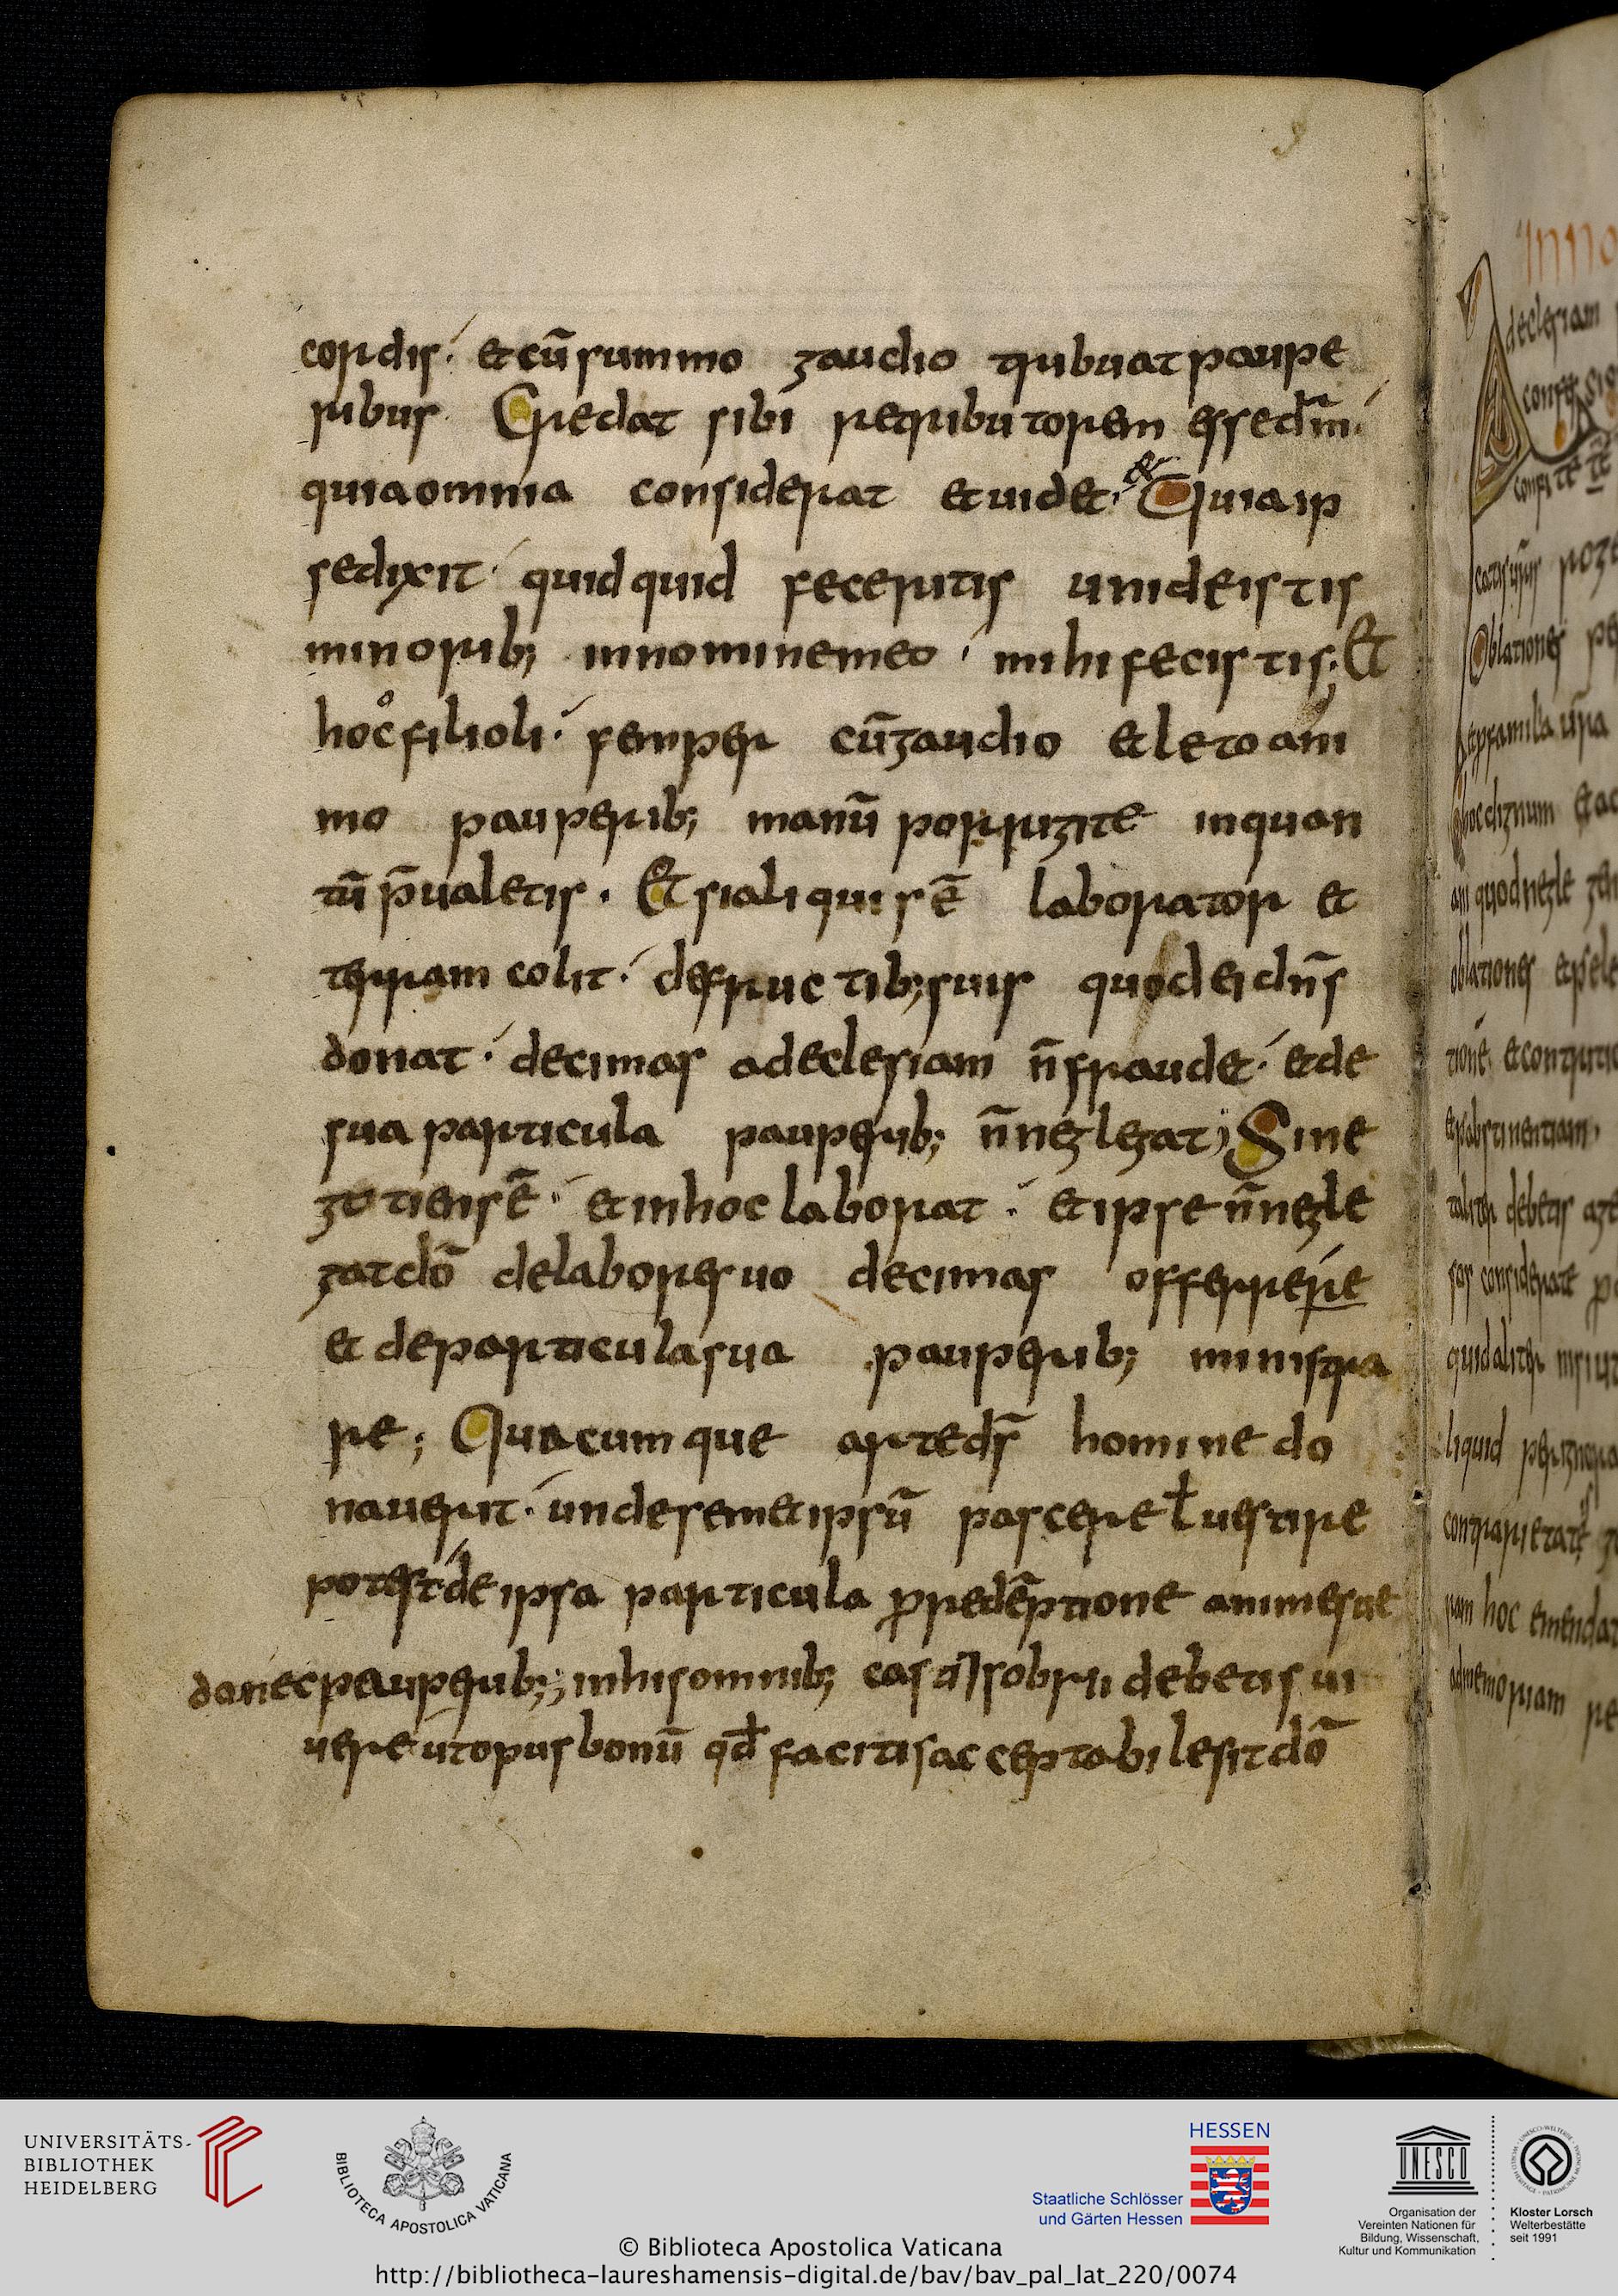 cordis· et cū summo gaudio tribuat paupe
ribus· Credat sibi retributorem esse dm̄·
quia omnia considerat et uidet· & Quia ip
se dixit· quidquid feceritis uni de istis
minorib; in nomine meo· mihi fecistis; Et
hoc filioli· semper cū gaudio et leto ani
mo pauperib; manū porrigite inquan
tū p̄ualetis· Et si aliquis ē laborator et
terram colit· de fructib; suis quod ei dn̄s
donat· decimas ad eclesiam n̄ fraudet· et de
sua particula pauperib; n̄ neglegat; Si ne
gotiens ē· et in hoc laborat· et ipse n̄ negle
gat dō de labore suo decimas offerrere
et de particula sua pauperib; ministra
re; Quacumque arte ds̄ homine do
nauerit· unde semetipsū pascere ł uestire
potest· de ipsa particula p̱ redēptione anime sue
donec pauperib;; in his omnib; casti sobrii debetis ui
uere ut opus bonū qđ facitis acceptabile sit dō
UNIVERSITÄTS-
BIBLIOTHEK
HEIDELBERG
BIBLIOTECA APOSTOLICA VATICANA
HESSEN
Staatliche Schlösser
und Gärten Hessen
UNESCO
Organisation der
Vereinten Nationen für
Bildung, Wissenschaft,
Kultur und Kommunikation
Kloster Lorsch
Welterbestätte
seit 1991
© Biblioteca Apostolica Vaticana
http://bibliotheca-laureshamensis-digital.de/bav/bav_pal_lat_220/0074